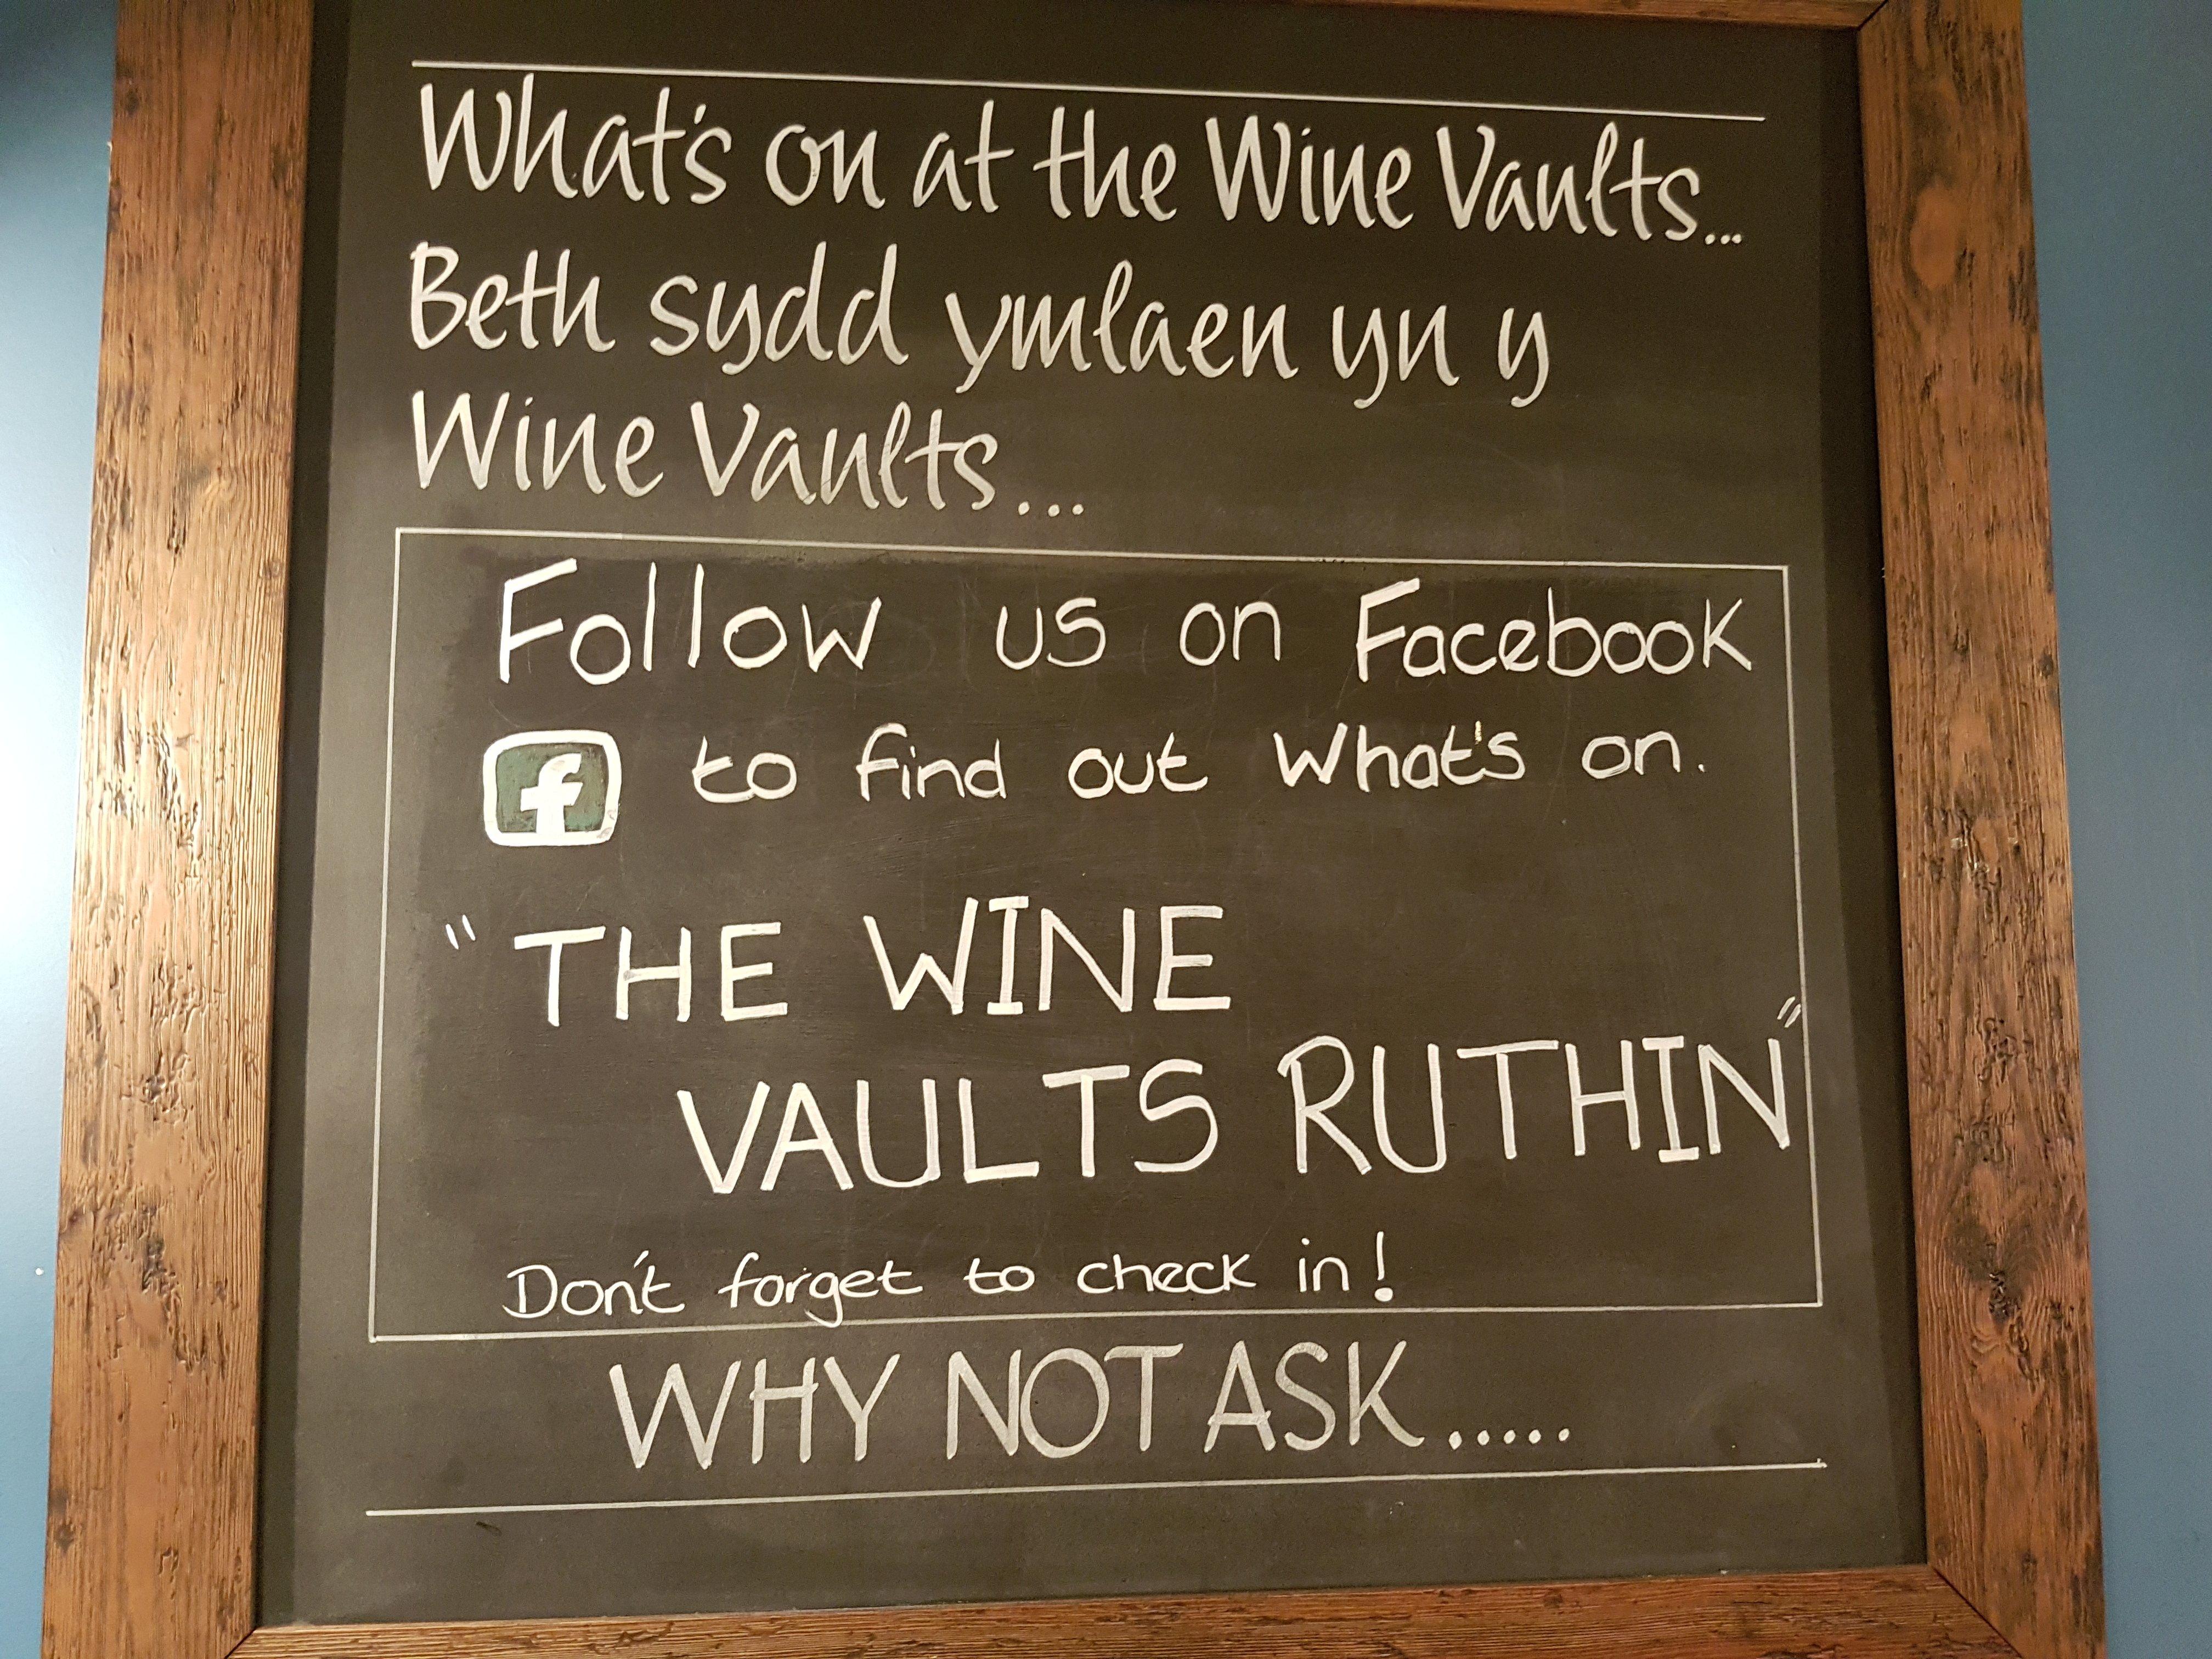 What's on at the Wine Vaults...
Beth sydd ymlaen yn y
Wine Vaults...
Follow us on Facebook
f to find out what's on.
"THE WINE
VAULTS RUTHIN"
Don't forget to check in!
WHY NOT ASK.....